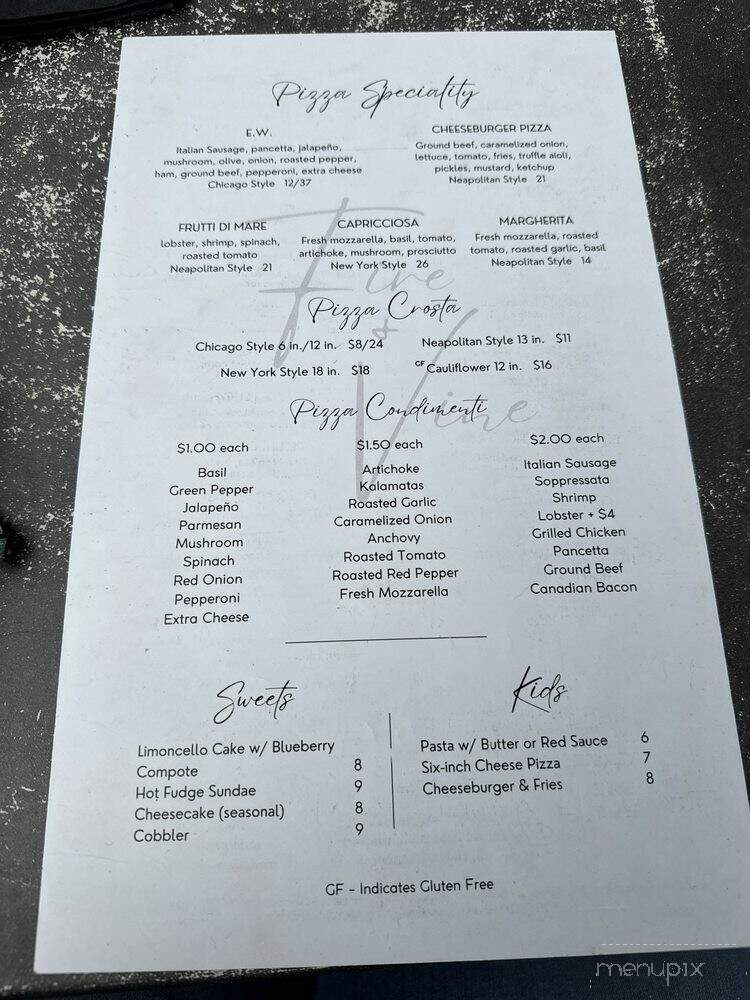 Pizza Speciality
E.W.
Italian Sausage, pancetta, jalapeño,
mushroom, olive, onion, roasted pepper,
ham, ground beef, pepperoni, extra cheese
Chicago Style 12/37
CHEESEBURGER PIZZA
Ground beef, caramelized onion,
lettuce, tomato, fries, truffle aioli,
pickles, mustard, ketchup
Neapolitan Style 21
FRUTTI DI MARE
lobster, shrimp, spinach,
roasted tomato
Neapolitan Style 21
CAPRICCIOSA
Fresh mozzarella, basil, tomato,
artichoke, mushroom, prosciutto
New York Style 26
MARGHERITA
Fresh mozzarella, roasted
tomato, roasted garlic, basil
Neapolitan Style 14
Fire
&
Vine
Pizza Crosta
Chicago Style 6 in./12 in. $8/24
Neapolitan Style 13 in. $11
New York Style 18 in. $18
GF Cauliflower 12 in. $16
Pizza Condimenti
$1.00 each
Basil
Green Pepper
Jalapeño
Parmesan
Mushroom
Spinach
Red Onion
Pepperoni
Extra Cheese
$1.50 each
Artichoke
Kalamatas
Roasted Garlic
Caramelized Onion
Anchovy
Roasted Tomato
Roasted Red Pepper
Fresh Mozzarella
$2.00 each
Italian Sausage
Soppressata
Shrimp
Lobster + $4
Grilled Chicken
Pancetta
Ground Beef
Canadian Bacon
Sweets
Limoncello Cake w/ Blueberry
Compote 8
Hot Fudge Sundae 9
Cheesecake (seasonal) 8
Cobbler 9
Kids
Pasta w/ Butter or Red Sauce 6
Six-inch Cheese Pizza 7
Cheeseburger & Fries 8
GF - Indicates Gluten Free
menupix